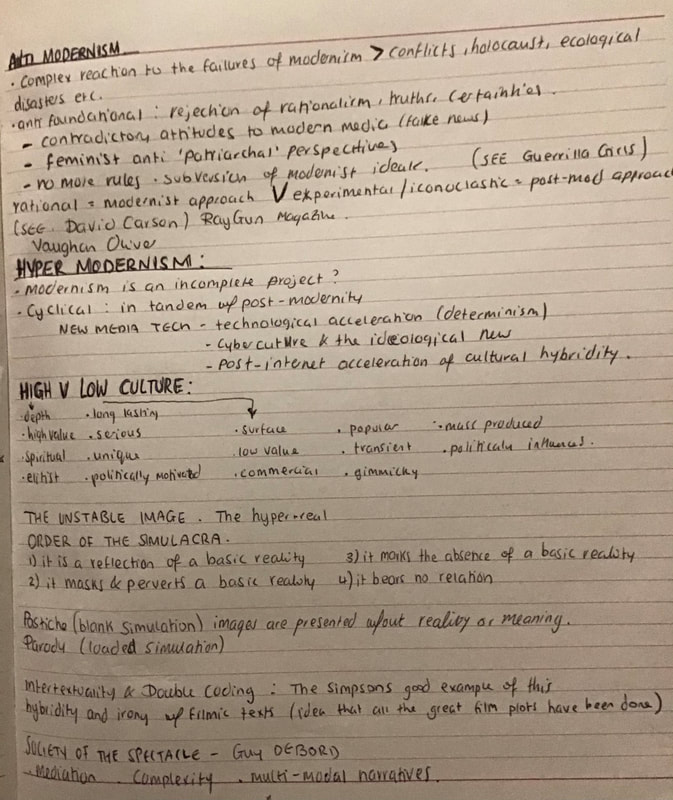 Anti MODERNISM
· Complex reaction to the failures of modernism > conflicts, holocaust, ecological
disasters etc.
· anti foundational : rejection of rationalism, truths, certainties.
- contradictory attitudes to modern media (fake news)
- feminist anti 'patriarchal' perspectives
- no more rules · subversion of modernist ideals. (SEE Guerrilla Girls)
rational = modernist approach V experimental / iconoclastic = post-mod approach
(SEE. David Carson) RayGun Magazine.
Vaughan Oliver
HYPER MODERNISM :
· Modernism is an incomplete project ?
· Cyclical : in tandem w/ post-modernity
NEW MEDIA TECH - technological acceleration (determinism)
- Cyberculture & the ideological new
- Post-internet acceleration of cultural hybridity.
HIGH V LOW CULTURE :
· depth · long lasting
· high value · serious · surface · popular · mass produced
· spiritual · unique low value · transient · politically
· elitist · politically motivated · commercial · gimmicky
THE UNSTABLE IMAGE . The hyper-real
ORDER OF THE SIMULACRA .
1) it is a reflection of a basic reality 3) it masks the absence of a basic reality
2) it masks & perverts a basic reality 4) it bears no relation
Pastiche (blank simulation) images are presented w/out reality or meaning.
Parody (loaded simulation)
Intertextuality & Double Coding : The Simpsons good example of this
hybridity and irony w/ filmic texts (idea that all the great film plots have been done)
SOCIETY OF THE SPECTACLE - Guy DEBORD
- Mediation . Complexity . multi-modal narratives.